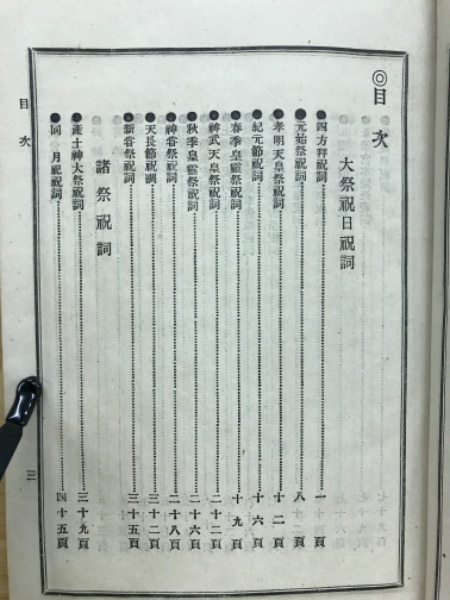 ◎目次
大祭祝日祝詞
●四方拜祝詞……一頁
●元始祭祝詞……八頁
●孝明天皇祭祝詞……十二頁
●紀元節祝詞……十六頁
●春季皇靈祭祝詞……十九頁
●神武天皇祭祝詞……二十二頁
●秋季皇靈祭祝詞……二十六頁
●神甞祭祝詞……二十八頁
●天長節祝詞……三十二頁
●新甞祭祝詞……三十五頁
諸祭祝詞
●產土神大祭祝詞……三十九頁
●同 月祝祝詞……四十五頁
目次
三